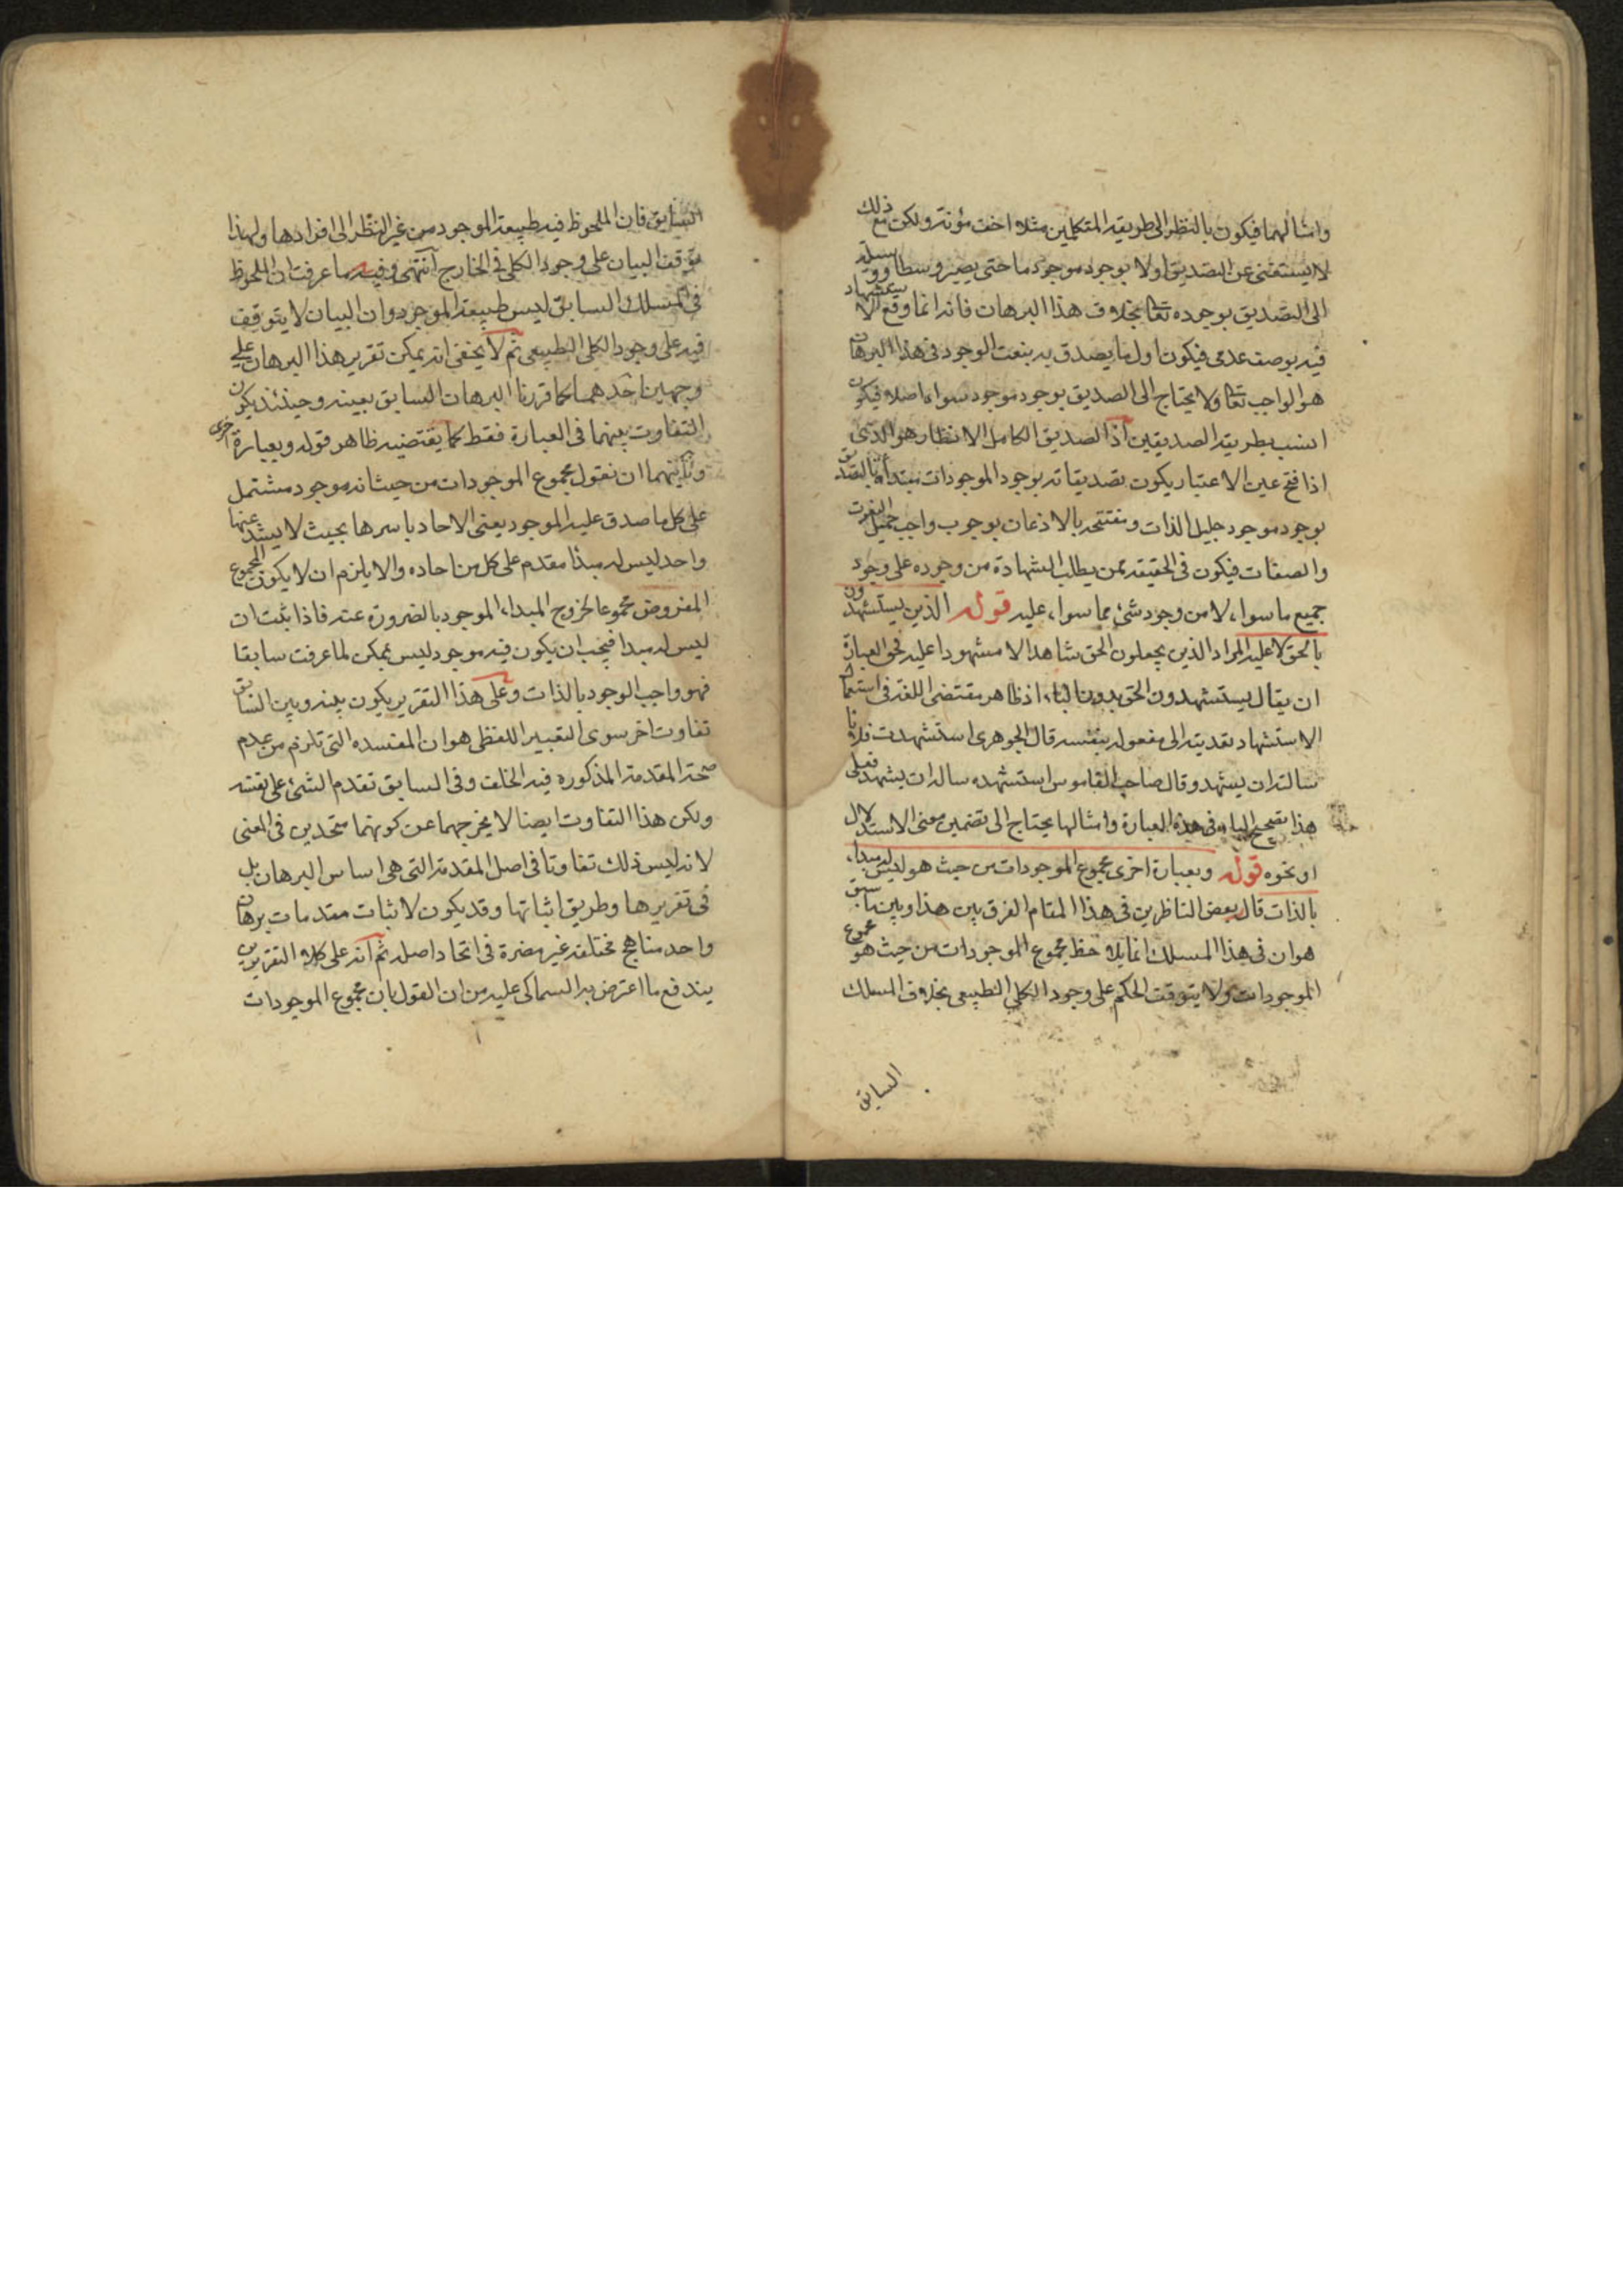 وامثالهما فيكون بالنظر الى طريقه المتكلمين مثلا اخف مؤنة ولكن مع ذلك
لا يستغنى عن التصديق اولا بوجود موجود ما حتى يصير وسطا ووسيلة
الى التصديق بوجوده تعالى بخلاف هذا البرهان فانه انما وقع الاستشهاد
فيه بوصف عدمى فيكون اول ما يصدق به بنعت الوجود فى هذا البرهان
هو الواجب تعالى ولا يحتاج الى الصديق بوجود موجود سواه اصلا فيكون
انسب بطريقه الصديقين اذ الصديق الكامل الانظار هو الذى
اذا فتح عين الاعتبار يكون تصديقاته بوجود الموجودات مبتدأة بالتصديق
بوجود موجود جليل الذات ومفتتحه بالاذعان بوجوب واجب جميل النعوت
والصفات فيكون فى الحقيقه ممن يطلب الشهادة من وجوده على وجود
جميع ما سواه لا من وجود شئ مما سواه عليه قوله الذين يستشهدون
بالحق لا عليه المراد الذين يجعلون الحق شاهدا لا مشهودا عليه فحق العبارة
ان يقال يستشهدون الحق بدون الباء اذ ظاهر مقتضى اللغة فى استعمال
الاستشهاد تعديته الى مفعوله بنفسه قال الجوهرى استشهدت فلانا
سالته ان يشهد وقال صاحب القاموس استشهده ساله ان يشهد فعلى
هذا تصحيح الباء فى هذه العبارة وامثالها يحتاج الى تضمين معنى الاستدلال
او نحوه قوله وبعبارة اخرى مجموع الموجودات من حيث هو ليس له مبداء
بالذات قال بعض الناظرين فى هذا المقام الفرق بين هذا وبين ما سبق
هو ان فى هذا المسلك انما يلاحظ مجموع الموجودات من حيث هو مجموع
الموجودات ولا يتوقف الحكم على وجود الكلى الطبيعى بخلاف المسلك
السابق
السابق فان الملحوظ فيه طبيعة الموجود من غير النظر الى افرادها ولهذا
توقف البيان على وجود الكلى فى الخارج انتهى وفيه ما عرفت ان الملحوظ
فى المسلك السابق ليس طبيعة الموجود وان البيان لا يتوقف
فيه على وجود الكلى الطبيعى ثم لا يخفى انه يمكن تقرير هذا البرهان على
وجهين احدهما كما قررنا البرهان السابق بعينه وحينئذ يكون
التفاوت بينهما فى العبارة فقط كما يقتضيه ظاهر قوله وبعبارة اخرى
وثانيهما ان نقول مجموع الموجودات من حيث انه موجود مشتمل
على كل ما صدق عليه الموجود يعنى الاحاد باسرها بحيث لا يشذ عنها
واحد ليس له مبدأ مقدم على كل من احاده والا يلزم ان لا يكون المجموع
المفروض مجموعا لخروج المبداء الموجود بالضرورة عنه فاذا ثبت ان
ليس له مبدا فيجب ان يكون فيه موجود ليس بممكن لما عرفت سابقا
فهو واجب الوجود بالذات وعلى هذا التقرير يكون بينه وبين السابق
تفاوت اخر سوى التعبير اللفظى هو ان المفسده التى تلزم من عدم
صحة المقدمة المذكوره فيه الخلف وفى السابق تقدم الشئ على نفسه
ولكن هذا التفاوت ايضا لا يخرجهما عن كونهما متحدين فى المعنى
لانه ليس ذلك تفاوتا فى اصل المقدمة التى هى اساس البرهان بل
فى تقريرها وطريق اثباتها وقد يكون لاثبات مقدمات برهان
واحد مناهج مختلفه غير مضرة فى اتحاد اصله ثم انه على كلا التقريرين
يندفع ما اعترض به السماكى عليه من ان القول بان مجموع الموجودات